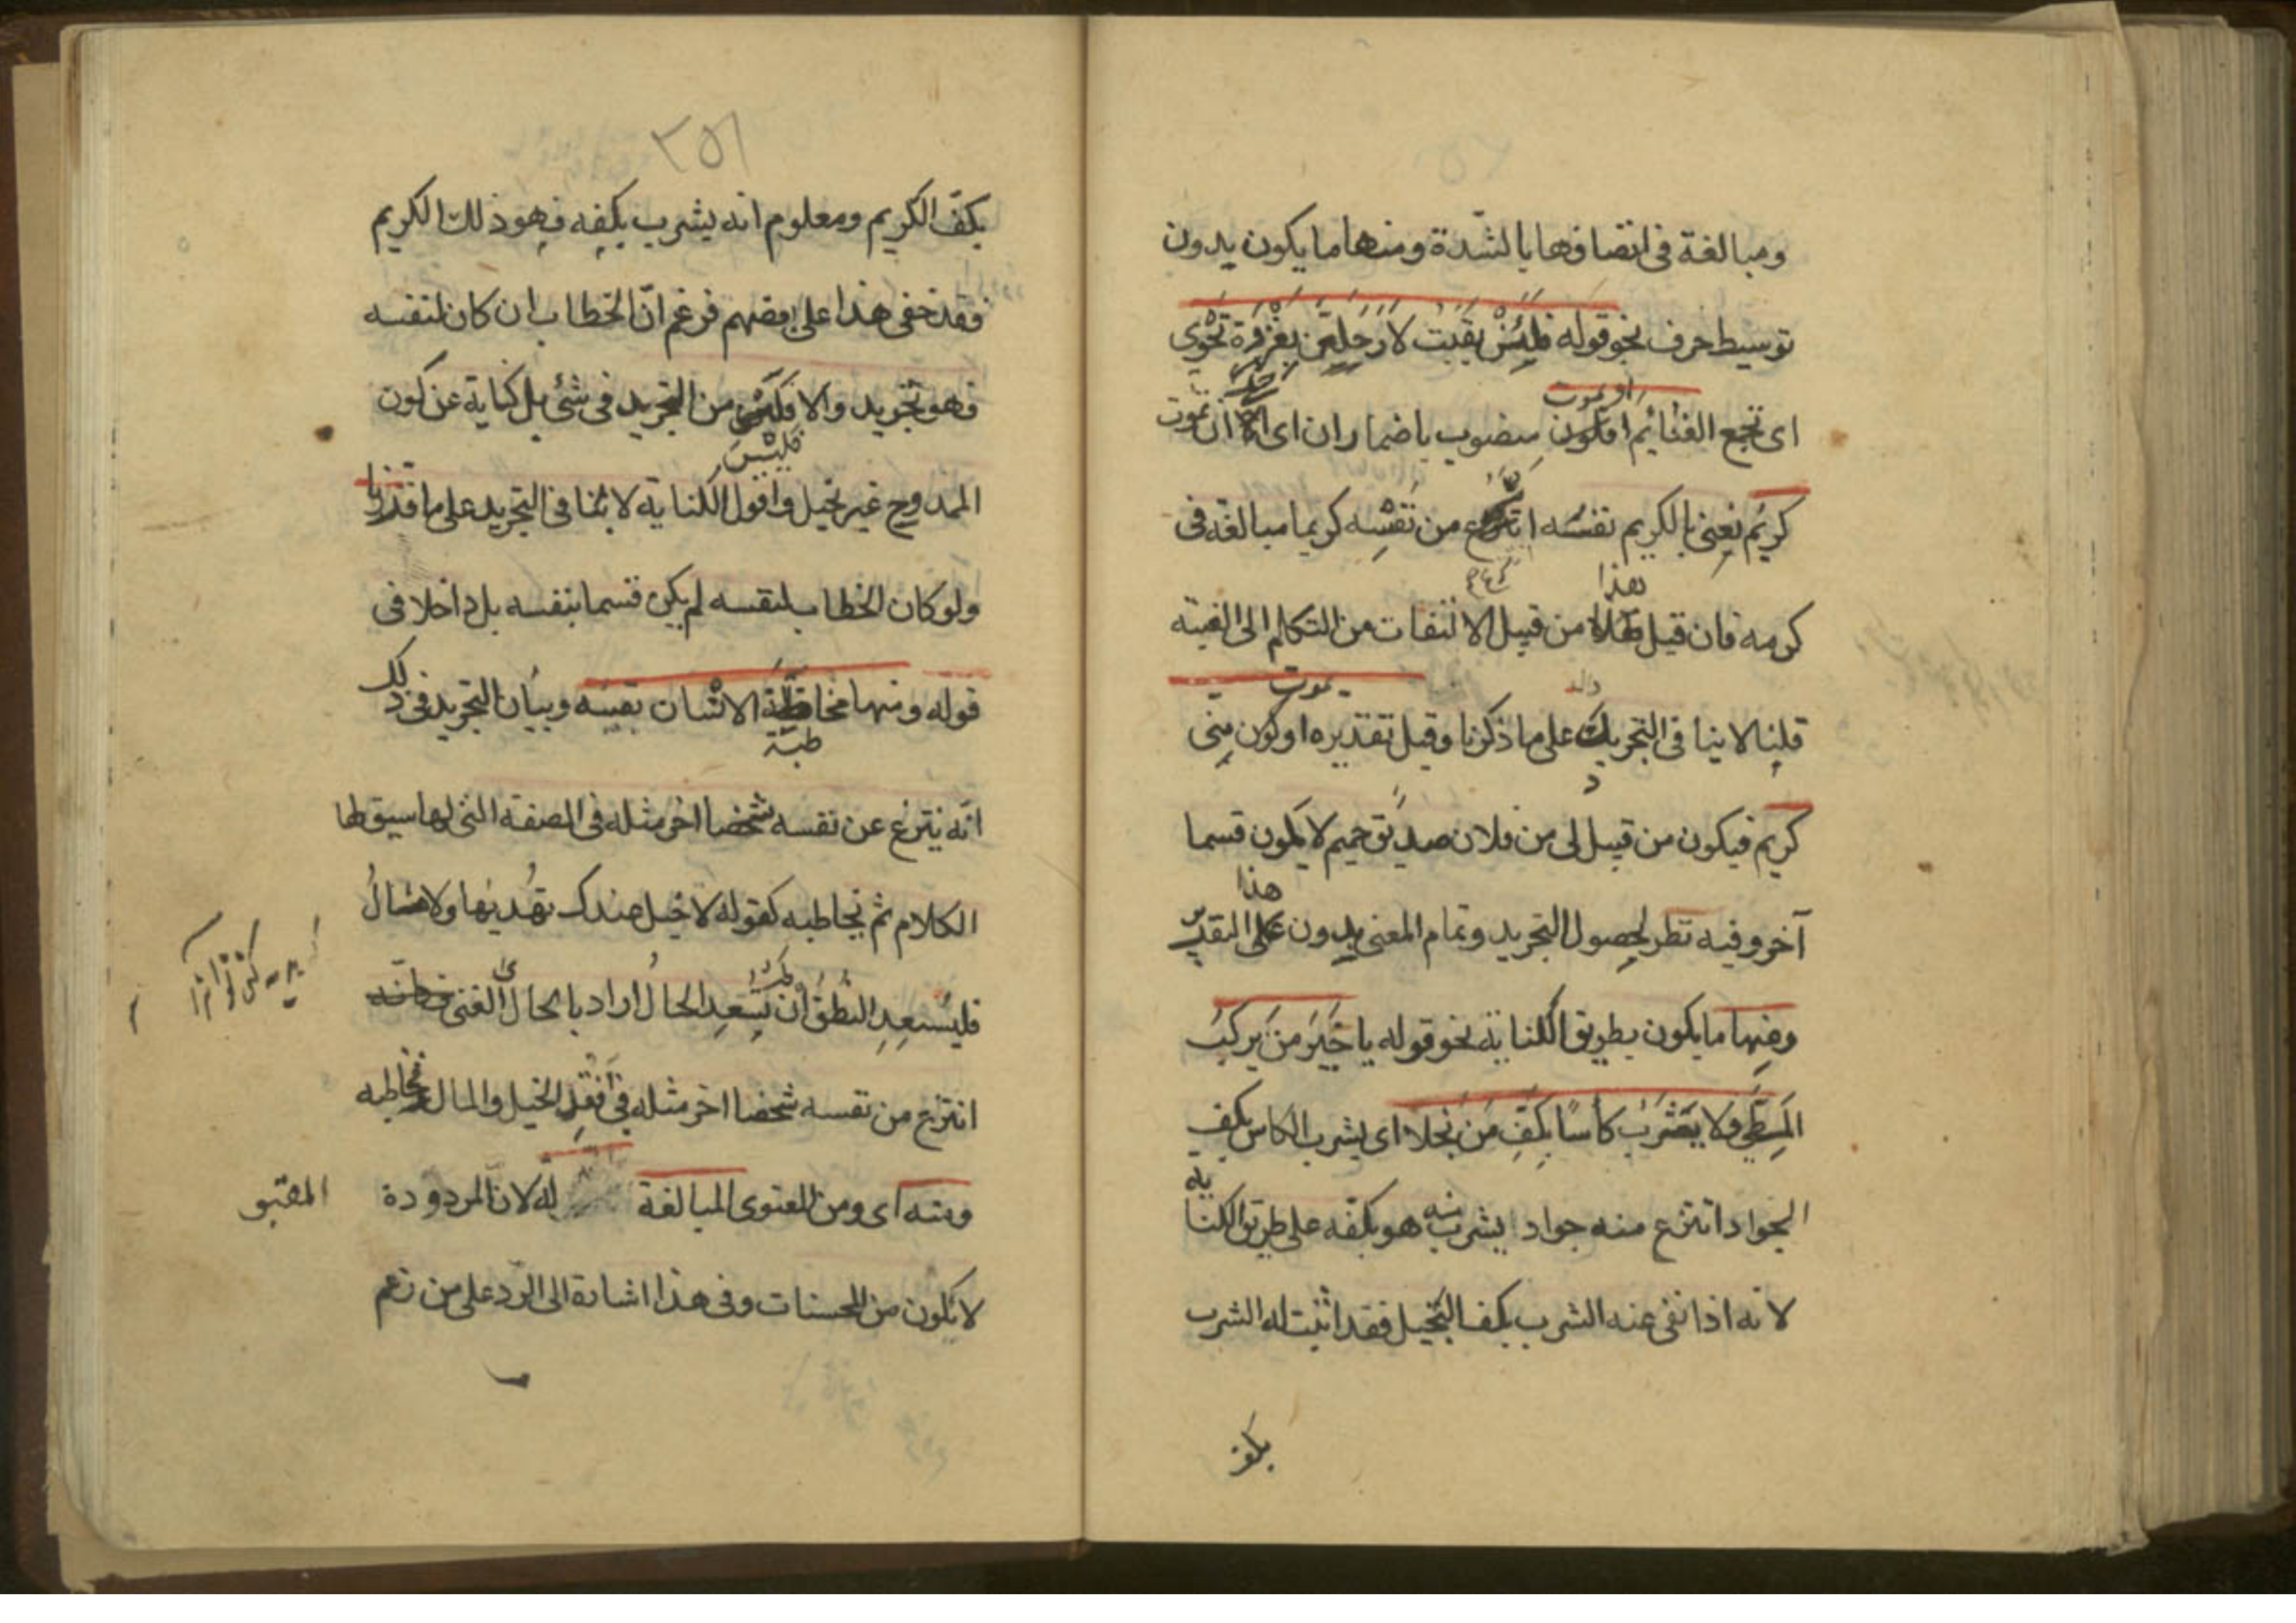 ومبالغة فى اتصافها بالشدة ومنها ما يكون بدون
توسيط حرف نحو قوله فلئن بقيت لارحلن بغزوة تحوى
اى تجمع الغنائم او يموت منصوب باضمار ان اى الا ان يموت
كريم يعنى بالكريم نفسه انتزع من نفسه كريما مبالغة فى
كرمه فان قيل هذا من قبيل الالتفات من التكلم الى الغيبة
قلنا لا ينافى التجريد على ما ذكرنا وقيل تقديره او يموت منى
كريم فيكون من قبيل لى من فلان صديق حميم لا يكون قسما
آخر وفيه نظر لحصول التجريد وتمام المعنى بدون هذا التقدير
ومنها ما يكون بطريق الكناية نحو قوله يا خير من يركب
المطى ولا يشرب كأسا بكف من بخلا اى يشرب الكاس بكف
الجواد انتزع منه جوادا يشرب منه هو بكفه على طريق الكناية
لانه اذا نفى عنه الشرب بكف البخيل فقد اثبت له الشرب
بكف
٢٥١
بكف الكريم ومعلوم انه يشرب بكفه فهو ذلك الكريم
فقد خفى هذا على بعضهم فزعم ان الخطاب ان كان لنفسه
فهو تجريد والا فليس من التجريد فى شئ بل كناية عن كون
فليس
الممدوح غير بخيل واقول الكناية لا تنافى التجريد على ما قررنا
ولو كان الخطاب لنفسه لم يكن قسما بنفسه بل داخلا فى
قوله ومنها مخاطبة الانسان نفسه وبيان التجريد فى ذلك
طبة
انه ينتزع عن نفسه شخصا اخر مثله فى الصفة التى لها سيق لها
الكلام ثم يخاطبه كقوله لا خيل عندك تهديها ولا مال
فليسعد النطق ان لم يسعد الحال اراد بالحال الغنى فكانه
انتزع من نفسه شخصا اخر مثله فى فقد الخيل والمال فخاطبه
ومنه اى ومن المعنوى المبالغة المقبولة لان المردودة
لا يكون من المحسنات وفى هذا اشارة الى الرد على من زعم